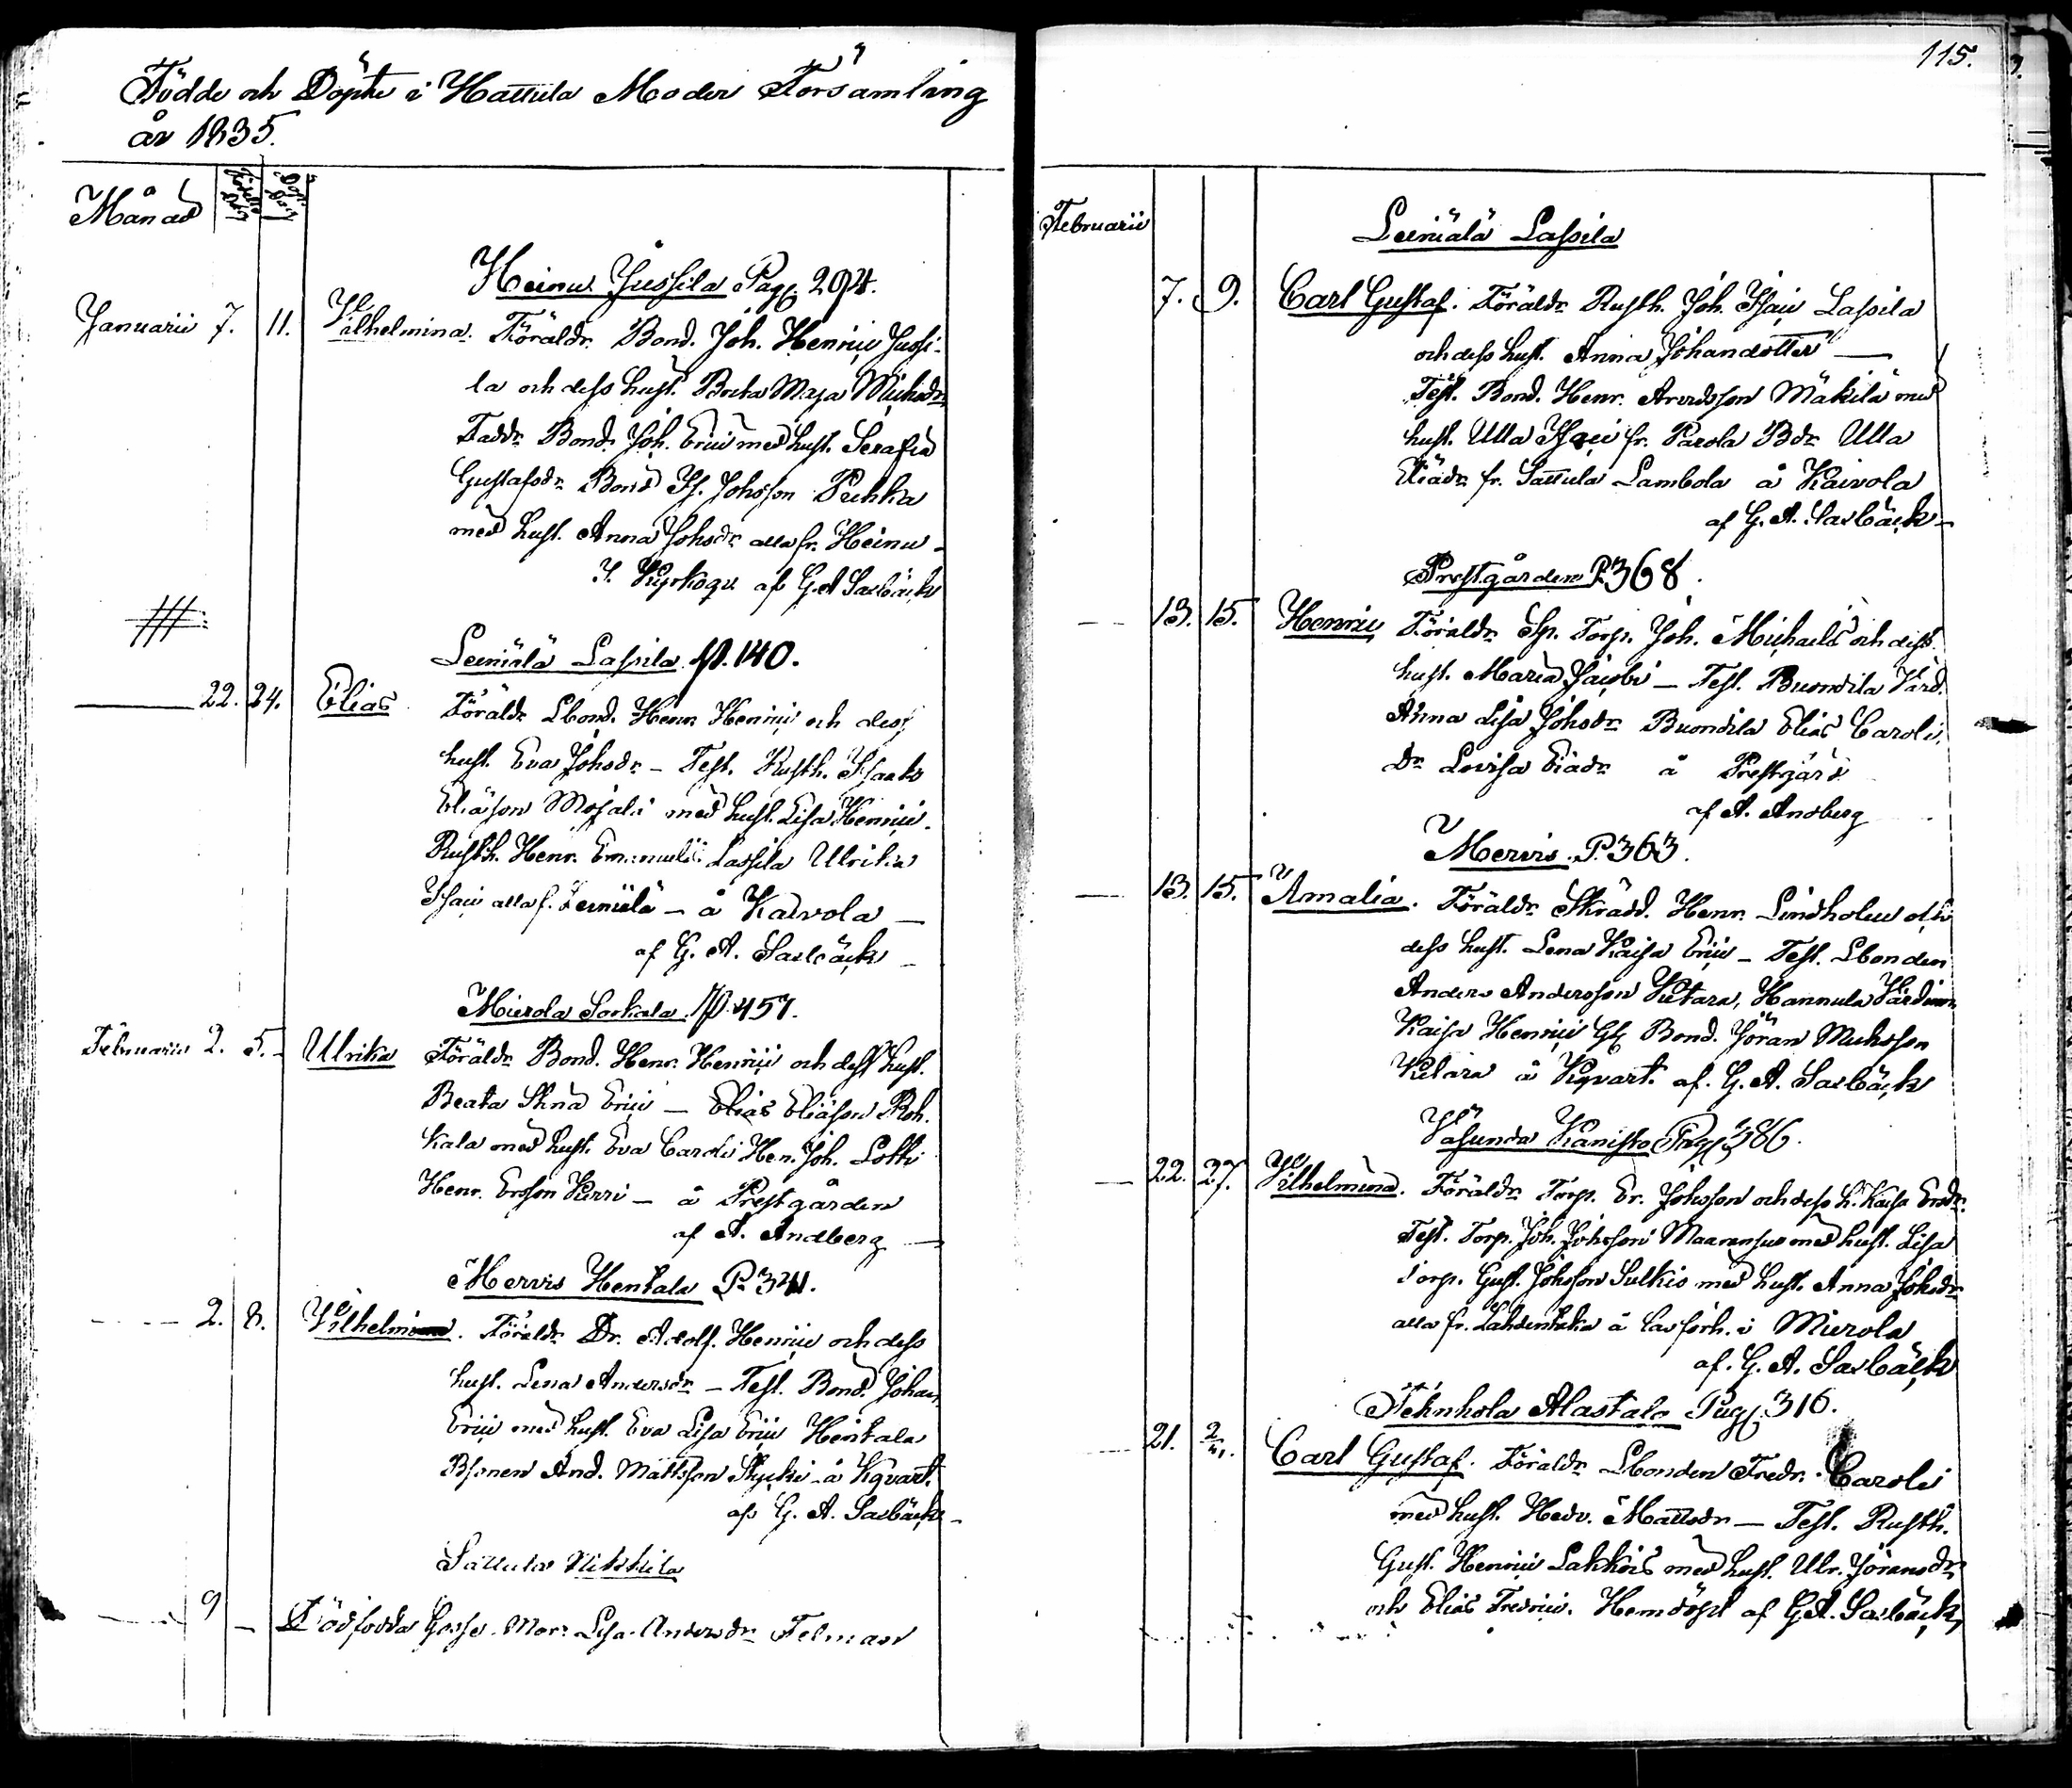 Födde och Döpte i Hattula Moder Församling
år 1835.
Månad Födelse Dag Dop Dag
Heinu Jussila Pag. 294.
Januarii 7. 11. Wilhelmina. Föräldr. Bond. Joh. Henrici Jussi-
la och dess hust. Brita Maja Michsdr
Faddr. Bond. Joh. Erici med hust. Serafia
Gustafsdr. Bond Is. Johsson Pukka
med hust. Anna Johsdr alla fr. Heinu -
af G. A. Sacbäck
Leiniälä Lassila p. 140.
22. 24. Elias Föräldr Lbond. Henr. Henrici och dess
hust. Eva Johsdr - Test. Rusth. Isaak
Eliasson med hust. Lisa Henrici.
Rusth. Henr. Lassila Ulrika
Isaci alla f. Leiniälä - å Kaivola -
af G. A. Sacbäck -
Mierola Sorkala p. 457.
Februarii 2. 5. Ulrika Föräldr Bond. Henr. Henrici och dess hust.
Beata Stina Erici - Elias Eliasson Roh-
kala med hust. Eva Caroli Hen. Joh. Lotti
Henr. Ersson - å Prestgården
af A. Andberg
Mervis Hentala P.
2. 8. Föräldr Dr. Adolf. Henrici och dess
hust. Lena Andersdr - Test. Bond. Johan
Erici med hust. Eva Lisa Erici Hentala
And. Mattsson å Kqvart.
af G. A. Sacbäck -
Sattula Nikkila
9 - Dödfödda Gosse. Mor: Lisa Andersdr Felman
115.
Februarii
Leiniälä Lassila
7. 9. Carl Gustaf. Föräldr Rusth. Joh. Isaci Lassila
och dess hust. Anna Johandotter -
Test. Bond. Henr. Arvidsson Mäkilä med
hust. Ulla Isaci fr. Parola Bdr Ulla
fr. Sattula Lambola å Kaivola
af G. A. Sacbäck -
Prestgården P. 368.
13. 15. Henric Föräldr Sp. Torp. Joh. Michaels och dess
hust. Maria Jacobi - Test.
Anna Lisa Johsdr Elias Caroli.
Dr Lovisa å Prestgård
af A. Andberg
Mervis. P. 363.
13. 15. Amalia. Föräldr Skrädd. Henr. Lindholm och
dess hust. Lena Kaisa Erici - Test. Lbonden
Anders Andersson Hannula
Kaisa Henrici Bond. Jöran
å Kqvart. af. G. A. Sacbäck
Wäsunda Kanisto Pag. 386.
22. 27. Wilhelmina. Föräldr Torp. Er. Johsson och dess h. Kaisa
Test. Torp. Joh. Johsson med hust. Lisa
Torp. Gust. Johsson Sulkio med hust. Anna Johsdr
alla fr. å i Mierola
af. G. A. Sacbäck
Alastalo Pag. 316.
21. Carl Gustaf. Föräldr Lbonden Fredr. Caroli
med hust. Hedv. Mattsdr - Test. Rusth.
Gust. Henrici med hust. Ulr. Jöransdr
och Elias Fredrici. Hemdöpt af G. A. Sacbäck